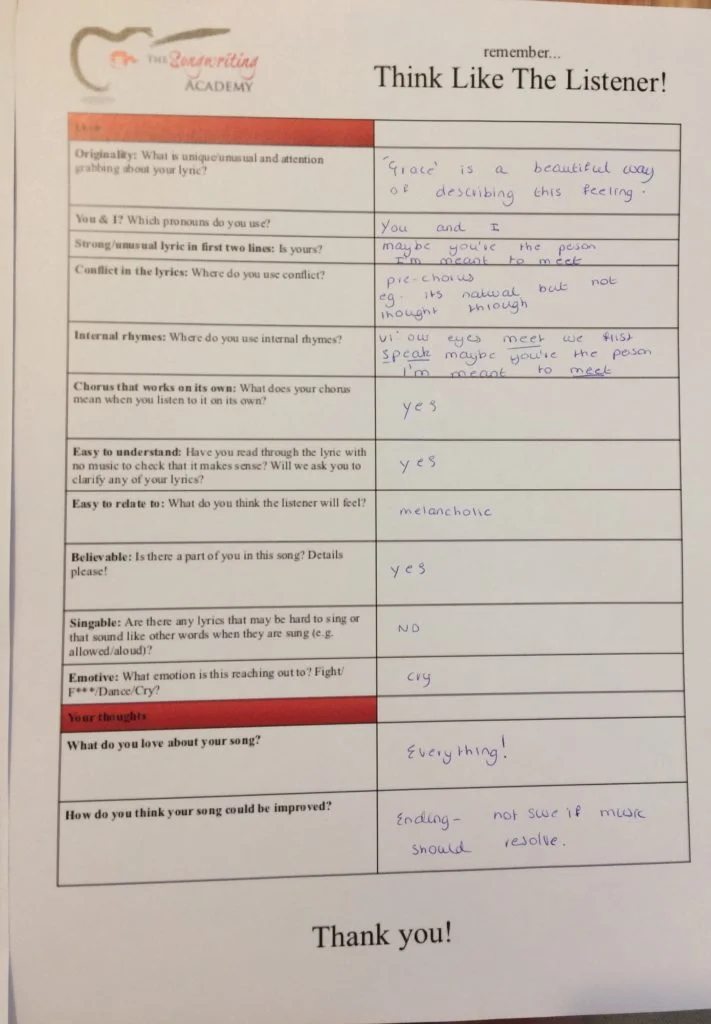 THE Songwriting
ACADEMY
remember...
Think Like The Listener!
Originality: What is unique/unusual and attention
grabbing about your lyric?
'Grace' is a beautiful way
of describing this feeling.
You & I? Which pronouns do you use?
You and I
Strong/unusual lyric in first two lines: Is yours?
maybe you're the peson
I'm meant to meet
Conflict in the lyrics: Where do you use conflict?
pre-chorus
eg. its natural but not
thought through
Internal rhymes: Where do you use internal rhymes?
V1 our eyes meet we first
speak maybe you're the peson
I'm meant to meet
Chorus that works on its own: What does your chorus
mean when you listen to it on its own?
yes
Easy to understand: Have you read through the lyric with
no music to check that it makes sense? Will we ask you to
clarify any of your lyrics?
yes
Easy to relate to: What do you think the listener will feel?
melancholic
Believable: Is there a part of you in this song? Details
please!
yes
Singable: Are there any lyrics that may be hard to sing or
that sound like other words when they are sung (e.g.
allowed/aloud)?
NO
Emotive: What emotion is this reaching out to? Fight/
F***/Dance/Cry?
cry
Your thoughts
What do you love about your song?
Everything!
How do you think your song could be improved?
Ending- not sure if music
should resolve.
Thank you!